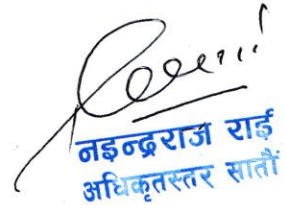 नइन्द्रराज राई
अधिकृतस्तर सातौं